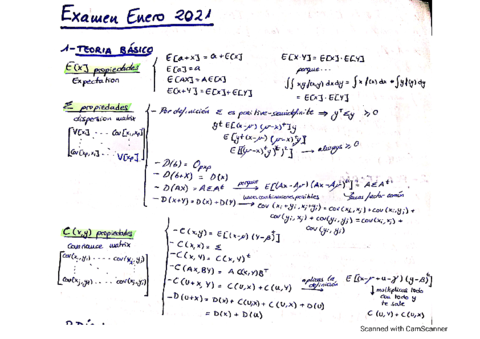 Examen Enero 2021
1-TEORIA BÁSICO
E[X] propiedades
Expectation
E[a+x] = a + E[x]
E[a] = a
E[AX] = A E[X]
E[X+Y] = E[X] + E[Y]
E[X·Y] = E[X]·E[Y]
porque...
∫∫ xy f(x,y) dx dy = ∫ x f(x) dx · ∫ y f(y) dy
= E[X]·E[Y]
Σ propiedades
dispersion matrix
V[x₁] ... Cov[x₁,xp]
Cov[xp,x₁] ... V[xp]
- Por definición Σ es positive-semidefinite ⇒ yᵗΣy ≥ 0
yᵗ E[(x-μ)(μ-x)ᵗ] y
E[yᵗ(x-μ)(μ-x)ᵗy]
E[((μ-x)ᵗy)²] → always ≥ 0
- D(b) = 0pxp
- D(b+X) = D(X)
- D(AX) = AΣAᵗ porque → E[(Ax-Aμ)(Ax-Aμ)ᵗ] = AΣAᵗ
sacas factor común
- D(X+Y) = D(X) + D(Y) → cov(xi+yi, xj+yj) = cov(xi,xj) + cov(xi,yj) +
cov(yi,xj) + cov(yi,yj) = cov(xi,xj) +
cov(yi,yj)
C(x,y) propiedades
covariance matrix
- C(x,y) = E[(x-μ)(y-β)ᵗ]
- C(x,x) = Σ
- C(X,Y) = C(X,Y)ᵗ
- C(AX,BY) = A C(X,Y)Bᵗ
- C(U+X,Y) = C(U,X) + C(U,Y) aplicas la definición →
- D(U+X) = D(X) + C(U,X) + C(U,X) + D(U)
= D(X) + D(U)
multiplicas todo
con todo y
te sale
C(U,Y) + C(U,X)
Scanned with CamScanner